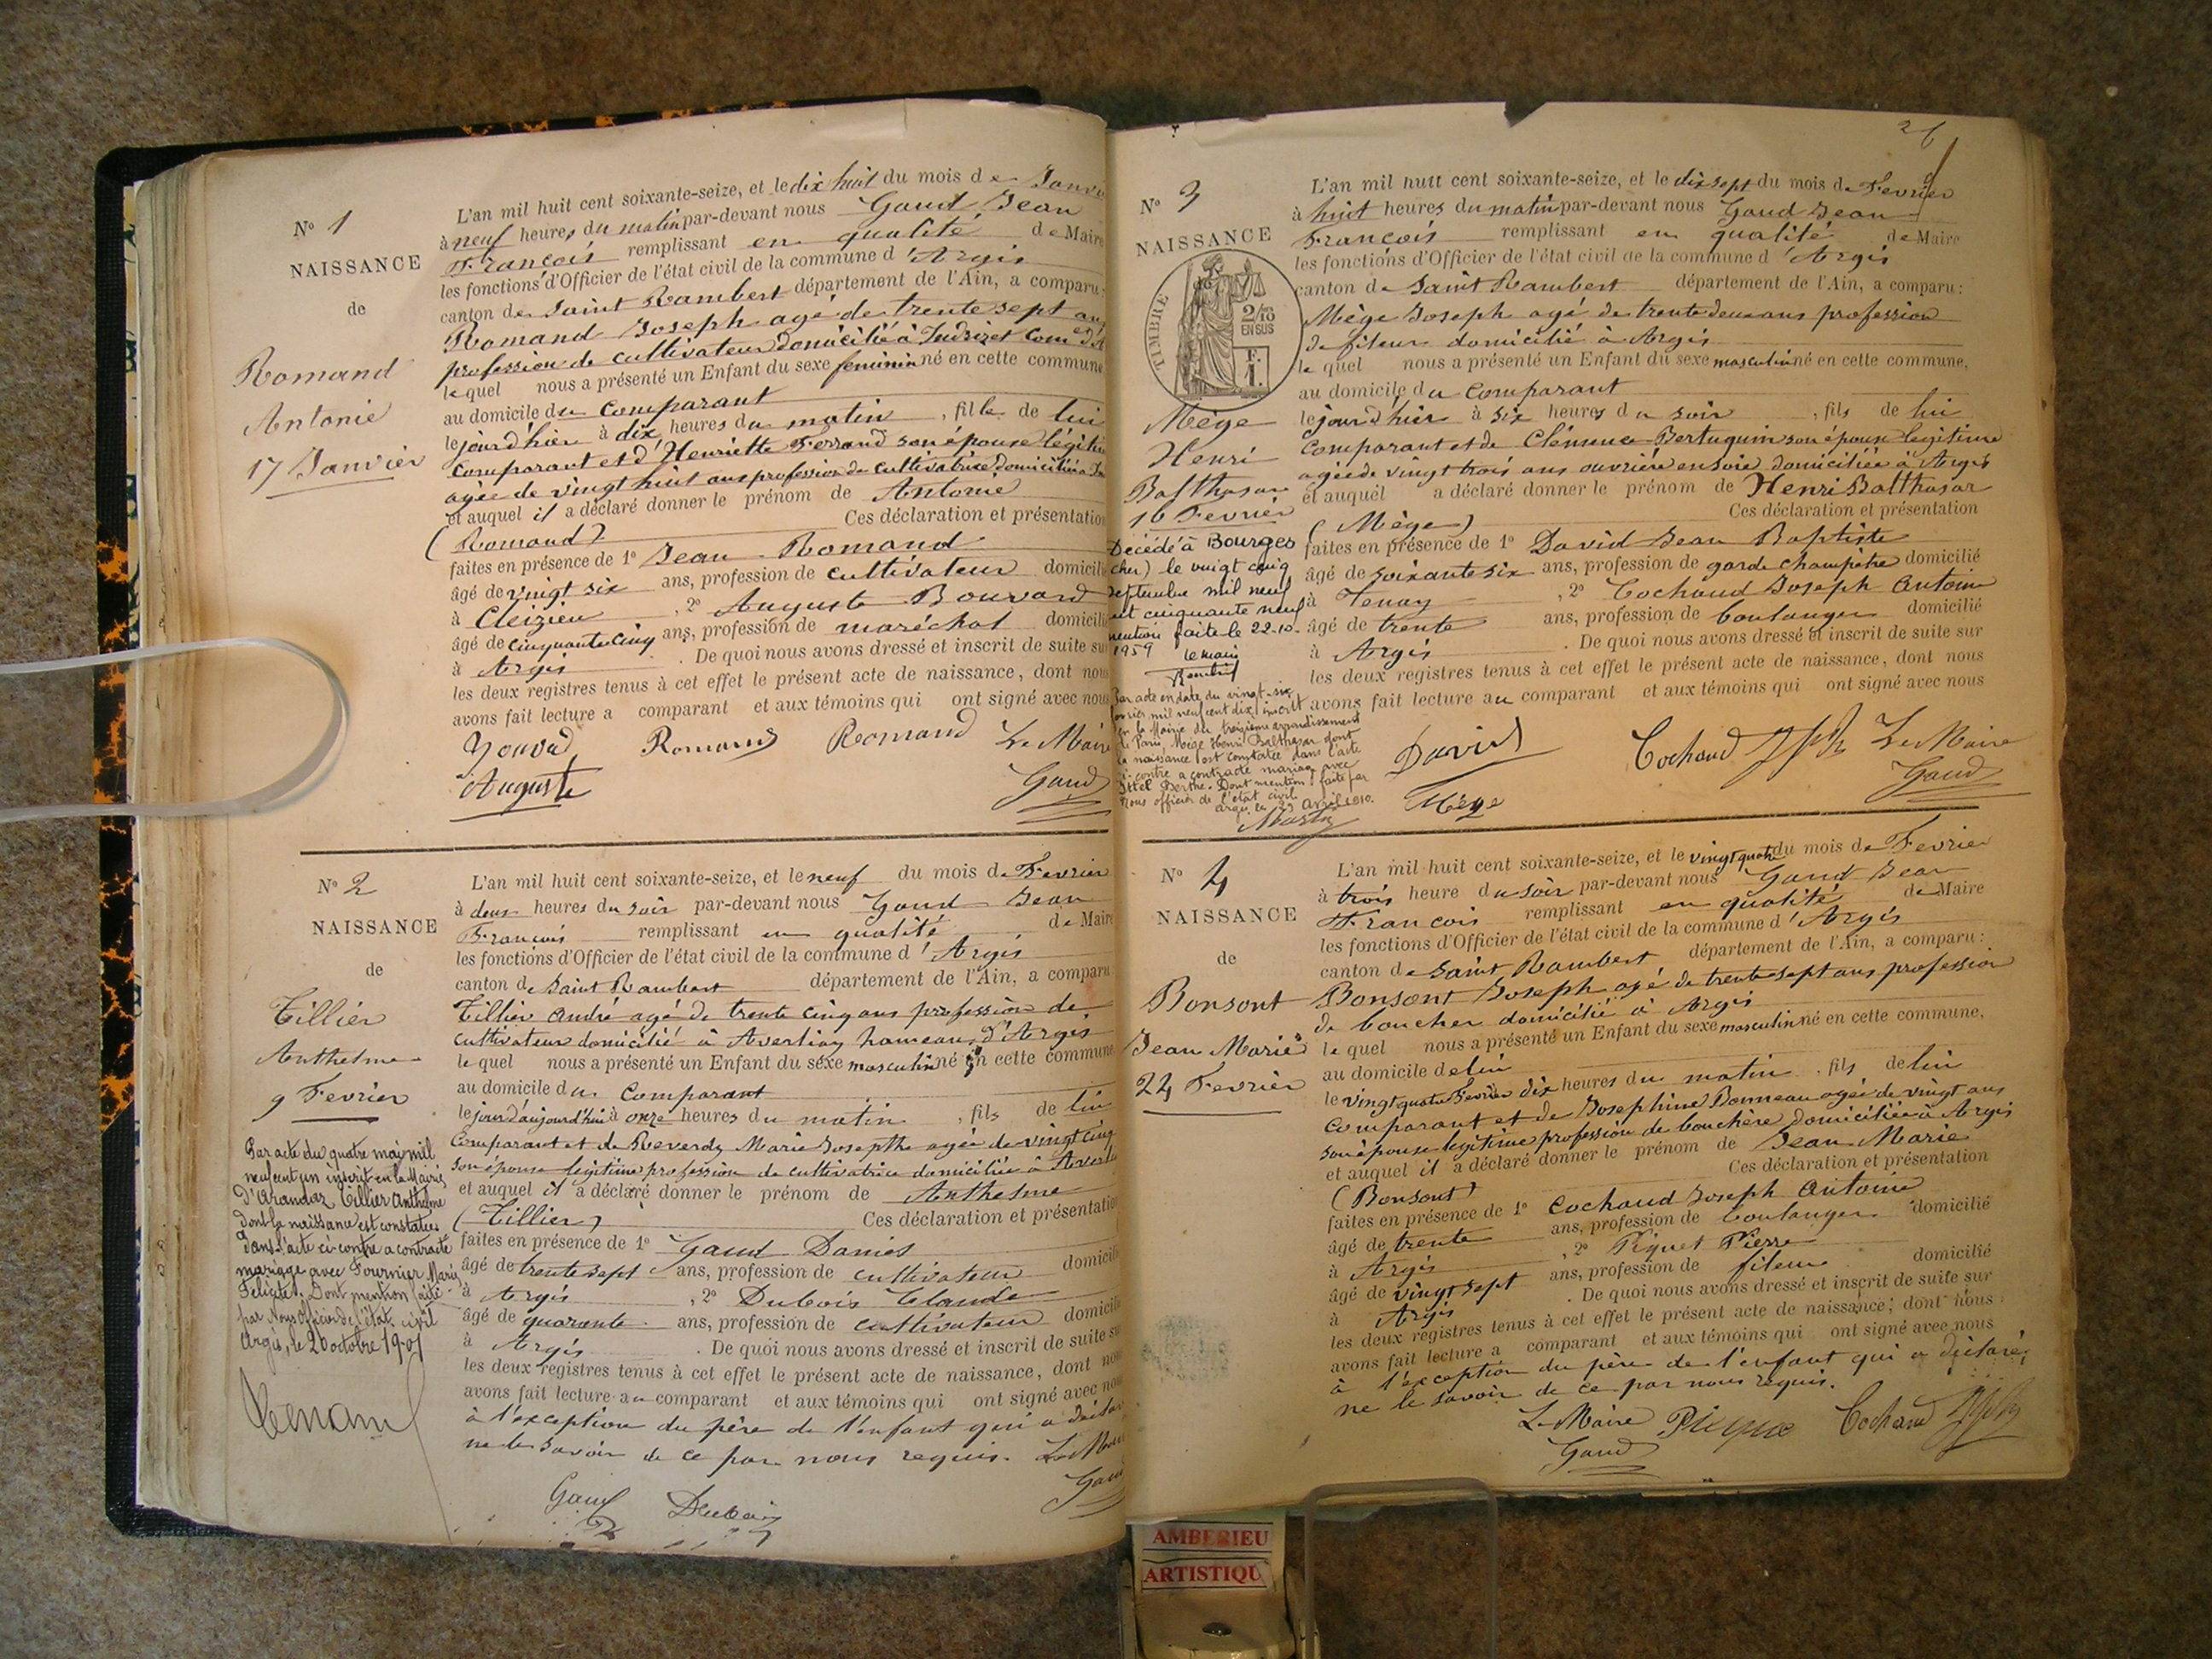 N° 1
NAISSANCE
de
Romand
Antonie
17 Janvier
L'an mil huit cent soixante-seize, et le dix huit du mois de Janvi
à neuf heures du matin par-devant nous Gaud Jean
François remplissant en qualité de Maire
les fonctions d'Officier de l'état civil de la commune d'Argis
canton de Saint Rambert département de l'Ain, a comparu:
Romand Joseph agé de trente sept ans
profession de cultivateur domicilié à
le quel nous a présenté un Enfant du sexe feminin né en cette commune
au domicile du Comparant
le jour d'hier à dix heures du matin, fille de lui
Comparant et d'Henriette Ferrand son épouse légiti
agée de vingt huit ans profession de cultivatrice domiciliée à
et auquel il a déclaré donner le prénom de Antonie
(Romand) Ces déclaration et présentation
faites en présence de 1° Jean Romand
âgé de vingt six ans, profession de cultivateur domicili
à Cleizieu, 2° Auguste Bouvard
âgé de cinquante cinq ans, profession de maréchal domicili
à Argis. De quoi nous avons dressé et inscrit de suite su
les deux registres tenus à cet effet le présent acte de naissance, dont nou
avons fait lecture a comparant et aux témoins qui ont signé avec nous
Romand Romand Le Maire
Auguste Gaud
N° 2
NAISSANCE
de
Tillier
Anthelme
9 Fevrier
Par acte du quatre mai mil
neuf cent un inscrit en la Mairie
d'Arandaz Tillier Anthelme
dont la naissance est constatée
dans l'acte ci-contre a contracté
mariage avec Fournier Marie
Felicité. Dont mention faite
par Nous Officier de l'état civil
Argis, le 26 octobre 1901
L'an mil huit cent soixante-seize, et le neuf du mois de Fevrier
à deux heures du soir par-devant nous Gaud Jean
François remplissant en qualité de Maire
les fonctions d'Officier de l'état civil de la commune d'Argis
canton de Saint Rambert département de l'Ain, a comparu
Tillier André agé de trente cinq ans profession de
cultivateur domicilié à hameau d'Argis
le quel nous a présenté un Enfant du sexe masculin né en cette commune
au domicile du Comparant
le jour d'aujourd'hui à onze heures du matin, fils de lui
Comparant et de Reverdy Marie Josephte agée de vingt cinq
son épouse légitime profession de cultivatrice domiciliée à
et auquel il a déclaré donner le prénom de Anthelme
(Tillier) Ces déclaration et présentation
faites en présence de 1° Gaud Daniel
âgé de trente sept ans, profession de cultivateur domicili
à Argis, 2° Dubois Claude
âgé de quarante ans, profession de cultivateur domicili
à Argis. De quoi nous avons dressé et inscrit de suite su
les deux registres tenus à cet effet le présent acte de naissance, dont nou
avons fait lecture au comparant et aux témoins qui ont signé avec nou
à l'exception du père de l'enfant qui a déclar
ne le savoir de ce par nous requis. Le Mai
Gaud Dubois Gaud
26
N° 3
NAISSANCE
TIMBRE
2/10
EN SUS
Mège
Henri
Balthasar
16 Fevrier
Décédé à Bourges
(cher) le vingt cinq
septembre mil neuf
cent cinquante neuf
mention faite le 22-10-
1959 le maire
Par acte en date du vingt-six
fevrier mil neuf cent dix, inscrit
en la Mairie du treizième arrondissement
de Paris, Mège Henri Balthasar dont
la naissance est constatée dans l'acte
ci-contre a contracté mariage avec
Ittel Berthe. Dont mention faite par
Nous officier de l'état civil
Argis le 23 avril 1910.
L'an mil huit cent soixante-seize, et le dix sept du mois de Fevrier
à huit heures du matin par-devant nous Gaud Jean
François remplissant en qualité de Maire
les fonctions d'Officier de l'état civil de la commune d'Argis
canton de Saint Rambert département de l'Ain, a comparu:
Mège Joseph agé de trente deux ans profession
de fileur domicilié à Argis
le quel nous a présenté un Enfant du sexe masculin né en cette commune,
au domicile du Comparant
le jour d'hier à six heures du soir, fils de lui
Comparant et de Clémence Bertuquin son épouse légitime
agée de vingt trois ans ouvrière en soie domiciliée à Argis
et auquel a déclaré donner le prénom de Henri Balthasar
(Mège) Ces déclaration et présentation
faites en présence de 1° David Jean Baptiste
âgé de soixante six ans, profession de garde champêtre domicilié
à Tenay, 2° Cochaud Joseph Antoine
âgé de trente ans, profession de boulanger domicilié
à Argis. De quoi nous avons dressé et inscrit de suite sur
les deux registres tenus à cet effet le présent acte de naissance, dont nous
avons fait lecture au comparant et aux témoins qui ont signé avec nous
David Cochaud Jph Le Maire
Mège Gaud
N° 4
NAISSANCE
de
Bonsont
Jean Marie
24 Fevrier
L'an mil huit cent soixante-seize, et le vingt quatre du mois de Fevrier
à trois heure du soir par-devant nous Gaud Jean
François remplissant en qualité de Maire
les fonctions d'Officier de l'état civil de la commune d'Argis
canton de Saint Rambert département de l'Ain, a comparu:
Bonsont Joseph agé de trente sept ans profession
de boucher domicilié à Argis
le quel nous a présenté un Enfant du sexe masculin né en cette commune,
au domicile de lui
le vingt quatre Fevrier dix heures du matin, fils de lui
Comparant et de Josephine Bonneau agée de vingt ans
son épouse légitime profession de bouchère domiciliée à Argis
et auquel il a déclaré donner le prénom de Jean Marie
(Bonsont) Ces déclaration et présentation
faites en présence de 1° Cochaud Joseph Antoine
âgé de trente ans, profession de boulanger domicilié
à Argis, 2° Piquet Pierre
âgé de vingt sept ans, profession de fileur domicilié
à Argis. De quoi nous avons dressé et inscrit de suite sur
les deux registres tenus à cet effet le présent acte de naissance, dont nous
avons fait lecture a comparant et aux témoins qui ont signé avec nous
à l'exception du père de l'enfant qui a déclaré
ne le savoir de ce par nous requis.
Le Maire Cochaud Jph
Gaud
AMBERIEU
ARTISTIQU